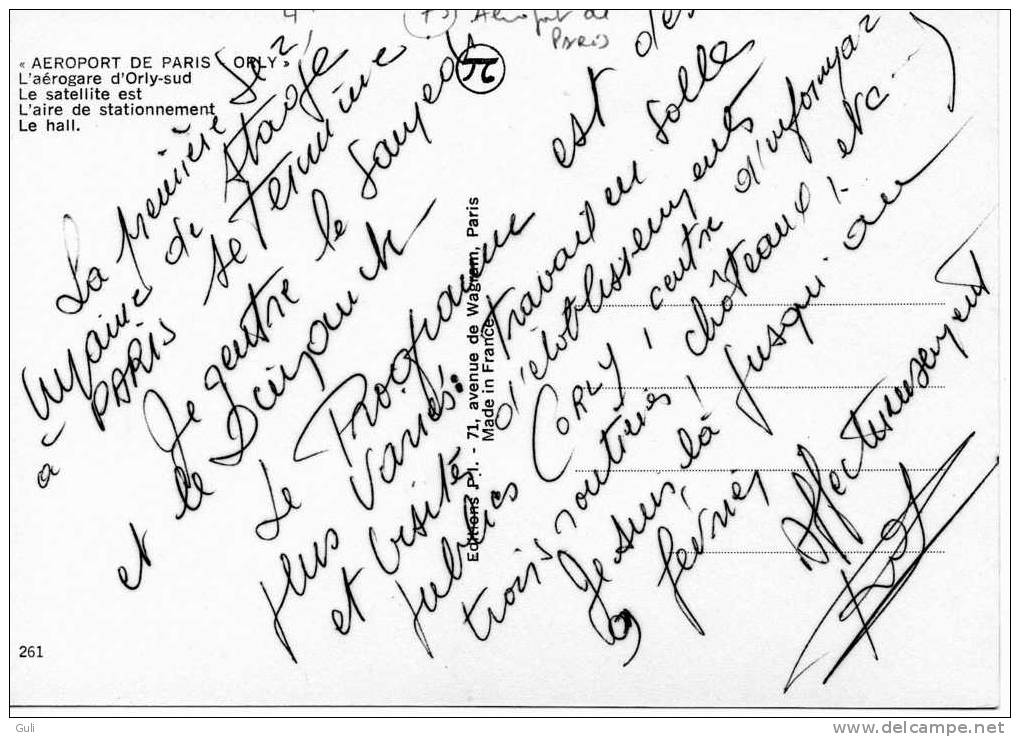 4
(75) Aeroport de
PARIS
« AEROPORT DE PARIS ORLY »
L'aérogare d'Orly-sud
Le satellite est
L'aire de stationnement
Le hall.
La première se
maine de stage
à PARIS se termine
Je rentre le samedi
et le Dimanche
Le Programme est des
plus variés: travail en salle
et visite d'établissements
publics (ORLY, centre d'informa
trois routières, châteaux! etc...)
Je suis là jusqu'au
9 février
Affectueusement
Editions P.I. - 71, avenue de Wagram, Paris
Made in France
261
Guli
www.delcampe.net